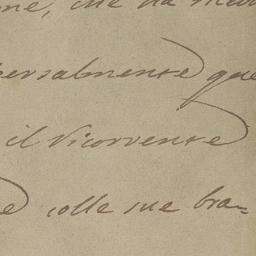 ne, che da
versalmente que
il Ricorrente
e colle sue bra=